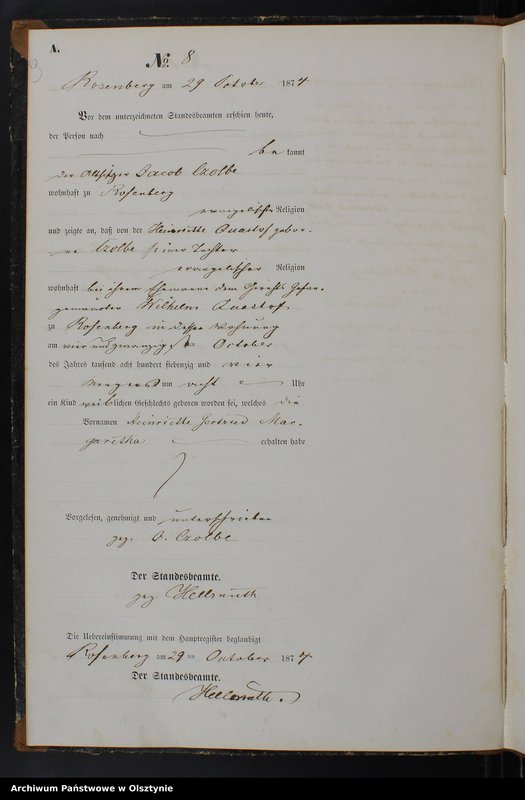 A.
No. 8
Rosenberg am 29 October 1874
Vor dem unterzeichneten Standesbeamten erschien heute,
der Person nach
be kannt
der Altsitzer Jacob Czolbe
wohnhaft zu Rosenberg
evangelischer Religion
und zeigte an, daß von der Henriette Quastof gebor-
ne Czolbe seiner Tochter
evangelischer Religion
wohnhaft bei ihrem Ehemanne dem Gerichts Gefan-
genwärter Wilhelm Quastof
zu Rosenberg in dessen Wohnung
am vier und zwanzigsten October
des Jahres tausend acht hundert siebenzig und vier
Morgens um acht Uhr
ein Kind weiblichen Geschlechts geboren worden sei, welches die
Vornamen Heinriette Gertrud Mar-
garetha erhalten habe
Vorgelesen, genehmigt und unterschrieben
gez. Czolbe
Der Standesbeamte.
gez Hellmuth
Die Uebereinstimmung mit dem Hauptregister beglaubigt
Rosenberg am 29 ten October 1874
Der Standesbeamte.
Hellmuth.
Archiwum Państwowe w Olsztynie